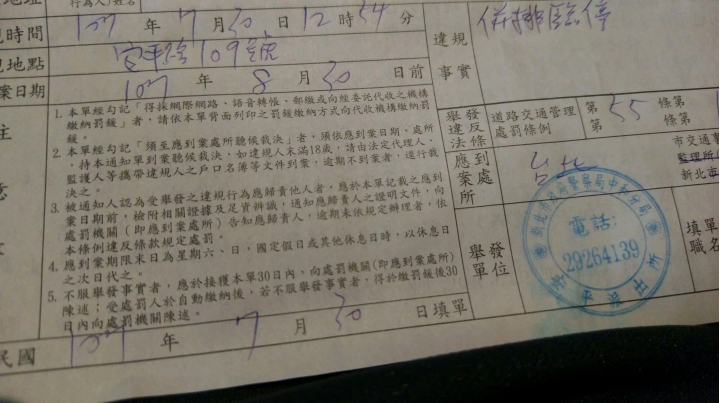 地址
行為人)姓名
時間 107 年 7 月 30 日 12 時 54 分
地點 109號
案日期 107 年 8 月 30 日前
違規事實 併排臨停
注
意
1. 本單經勾記「得採網際網路、語音轉帳、郵繳或向經委託代收之機構
繳納罰鍰」者,請依本單背面列印之罰鍰繳納方式向代收機構繳納罰
鍰。
2. 本單經勾記「須至應到案處所聽候裁決」者,須依應到案日期、處所
,持本通知單到案聽候裁決,如違規人未滿18歲,請由法定代理人、
監護人等攜帶違規人之戶口名簿等文件到案,逾期不到案者,逕行裁
決之。
3. 被通知人認為受舉發之違規行為應歸責他人者,應於本單記載之應到
案日期前,檢附相關證據及足資辨識、通知應歸責人之證明文件,向
處罰機關(即應到案處所)告知應歸責人,逾期未依規定辦理者,依
本條例違反條款規定處罰。
4. 應到案期限末日為星期六、日,國定假日或其他休息日時,以休息日
之次日代之。
5. 不服舉發事實者,應於接獲本單30日內,向處罰機關(即應到案處所)
陳述;受處罰人於自動繳納後,若不服舉發事實者,得於繳罰鍰後30
日內向處罰機關陳述。
舉發違反法條 道路交通管理處罰條例
第 55 條第
第 條第
應到案處所 台北
市交通事
監理所
新北市
舉發單位
電話:
29264139
派出所
填單
職名
民國 107 年 7 月 30 日填單